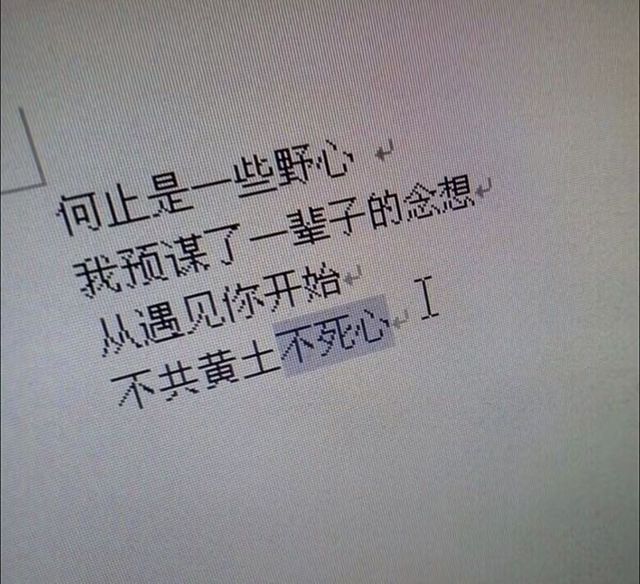 何止是一些野心
我预谋了一辈子的念想
从遇见你开始
不共黄土不死心